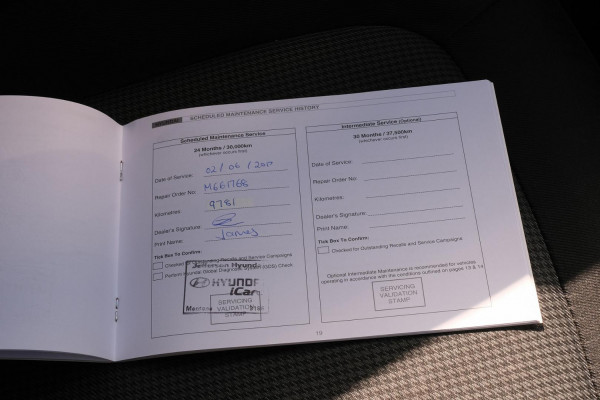 HYUNDAI SCHEDULED MAINTENANCE SERVICE HISTORY
Scheduled Maintenance Service
24 Months / 30,000km
(whichever occurs first)
Date of Service: 02/06/2017
Repair Order No:
Kilometres: 9781
Dealer's Signature:
Print Name: James
Tick Box To Confirm:
Checked for Outstanding Recalls and Service Campaigns
Perform Global Diagnostic System (GDS) Check
Hyundai
HYUNDAI
iCar
SERVICING
VALIDATION
STAMP
Intermediate Service (Optional)
30 Months / 37,500km
(whichever occurs first)
Date of Service:
Repair Order No:
Kilometres:
Dealer's Signature:
Print Name:
Tick Box To Confirm:
Checked for Outstanding Recalls and Service Campaigns
Optional Intermediate Maintenance is recommended for vehicles
operating in accordance with the conditions outlined on pages 13 & 14
SERVICING
VALIDATION
STAMP
19